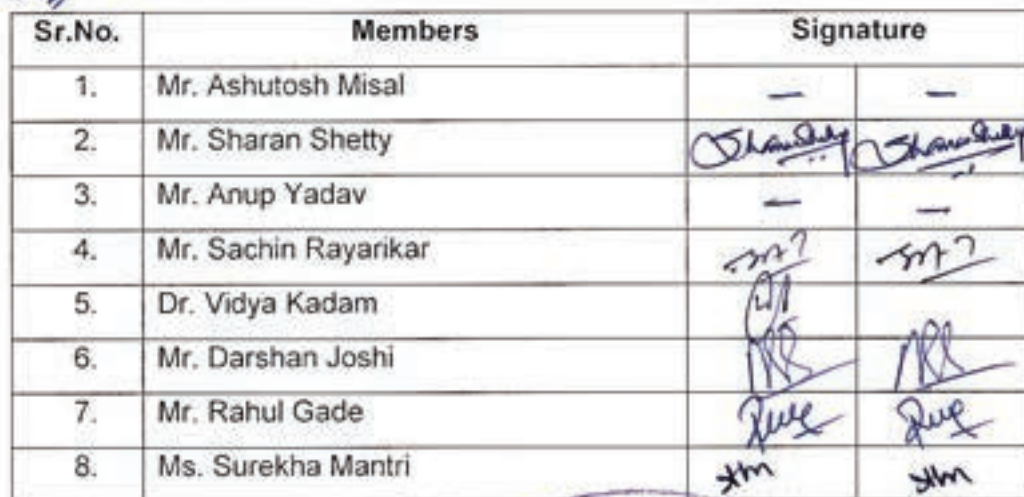 Sr.No. Members Signature
1. Mr. Ashutosh Misal — —
2. Mr. Sharan Shetty
3. Mr. Anup Yadav — —
4. Mr. Sachin Rayarikar
5. Dr. Vidya Kadam
6. Mr. Darshan Joshi
7. Mr. Rahul Gade
8. Ms. Surekha Mantri